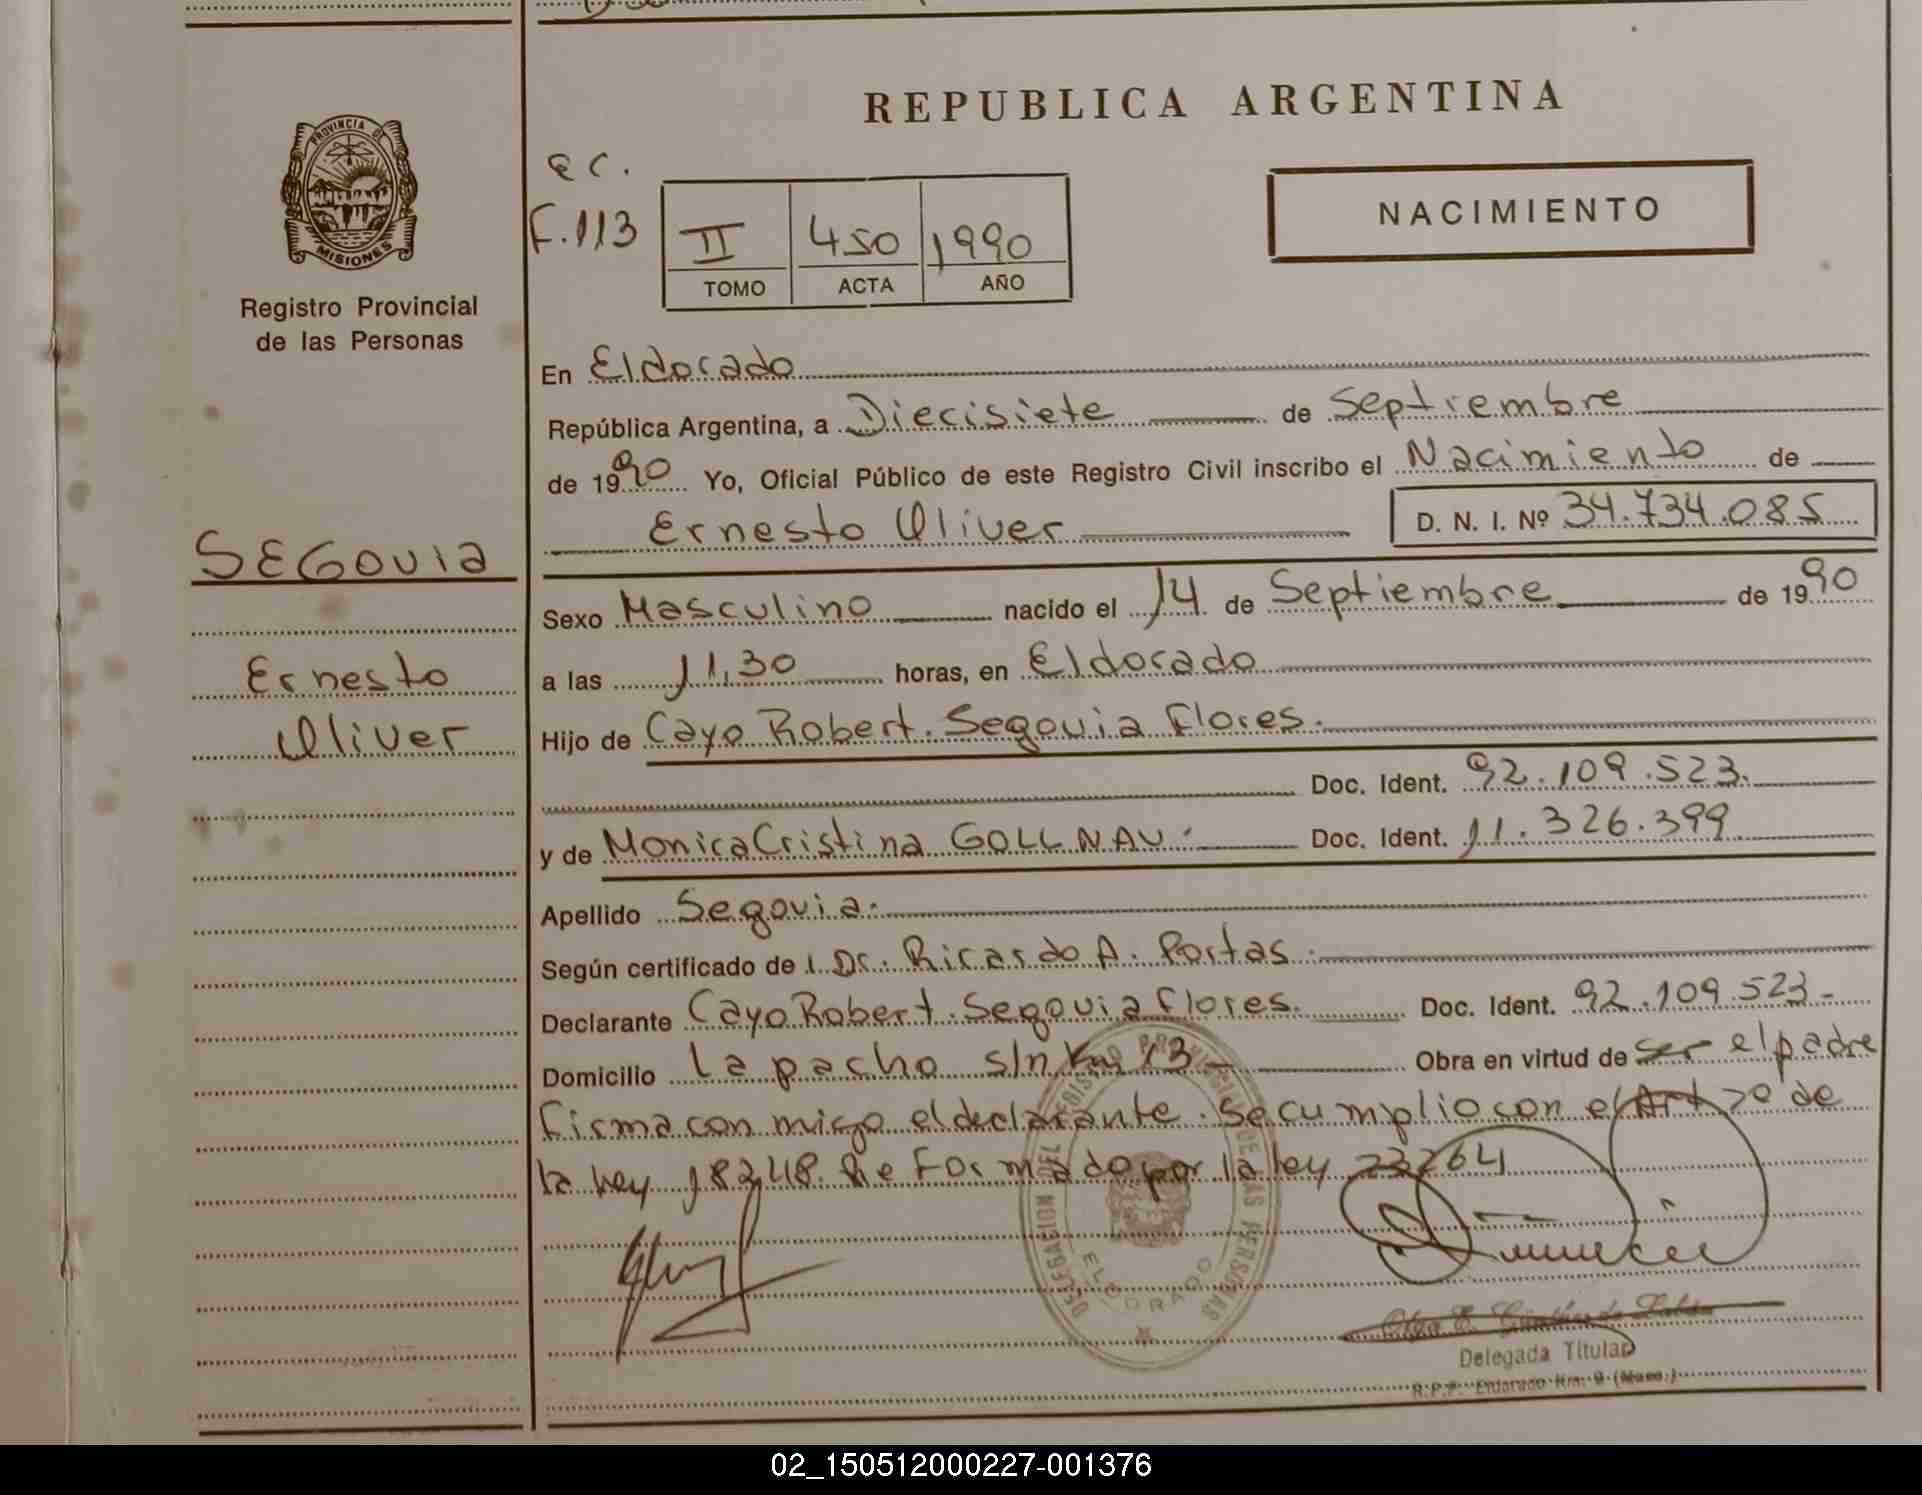 REPUBLICA ARGENTINA
PROVINCIA DE
MISIONES
Registro Provincial
de las Personas
F.113
II 450 1990
TOMO ACTA AÑO
NACIMIENTO
En Eldorado
República Argentina, a Diecisiete de Septiembre
de 1990 Yo, Oficial Público de este Registro Civil inscribo el Nacimiento de
Ernesto Uliver D. N. I. Nº 34.734.085
SEGOVIA
Ernesto
Uliver
Sexo Masculino nacido el 14 de Septiembre de 1990
a las 11,30 horas, en Eldorado
Hijo de Cayo Robert. Segovia Flores.
Doc. Ident. 92.109.523.
y de Monica Cristina GOLLNAU. Doc. Ident. 11.326.399
Apellido Segovia.
Según certificado de Dr. Ricardo A. Portas.
Declarante Cayo Robert. Segovia Flores. Doc. Ident. 92.109.523-
Domicilio Lapacho s/n Km 13- Obra en virtud de ser el padre
firma con migo el declarante. Se cumplio con el Art 2º de
la Ley 18248. Reformado por la ley 23264
DELEGACION DEL REGISTRO PROVINCIAL DE LAS PERSONAS
ELDORADO
Delegada Titular
R.P.P. Eldorado Km. 9 (Mnes.)
02_150512000227-001376